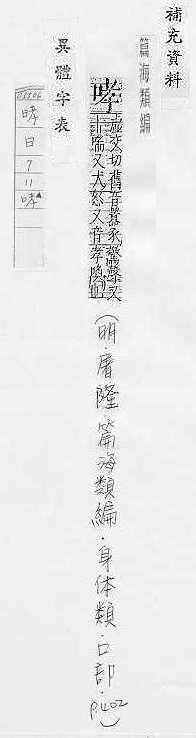 補充資料
篇海類編
哮
虛交切舊音囂豕驚聲又
呼篤又犬怒又音孝喚也
(明.屠隆.篇海類編.身体類.口部.P.402)
異體字表
哮
日
7
11
哮